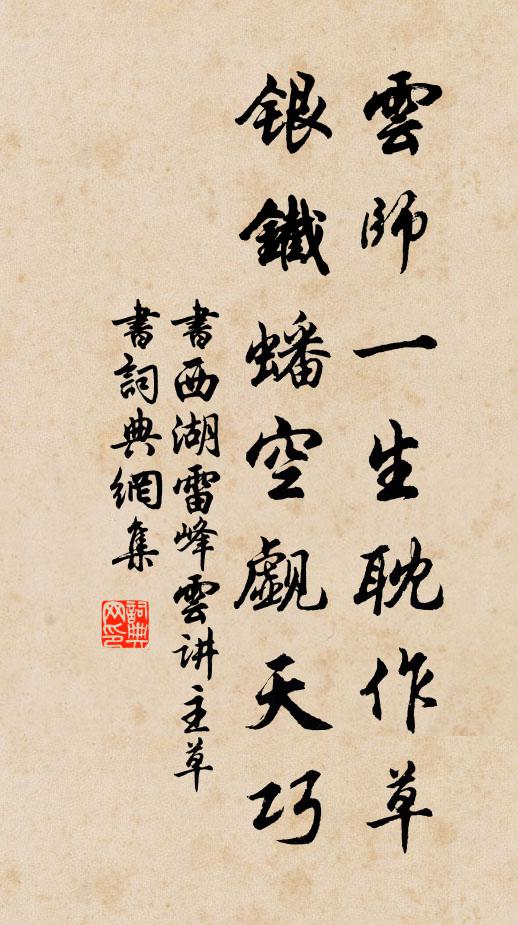 雲師一生耽作草
銀鐵蟠空觑天巧
書西湖雷峰雲讲主草
書詞典網集
詞典
网印